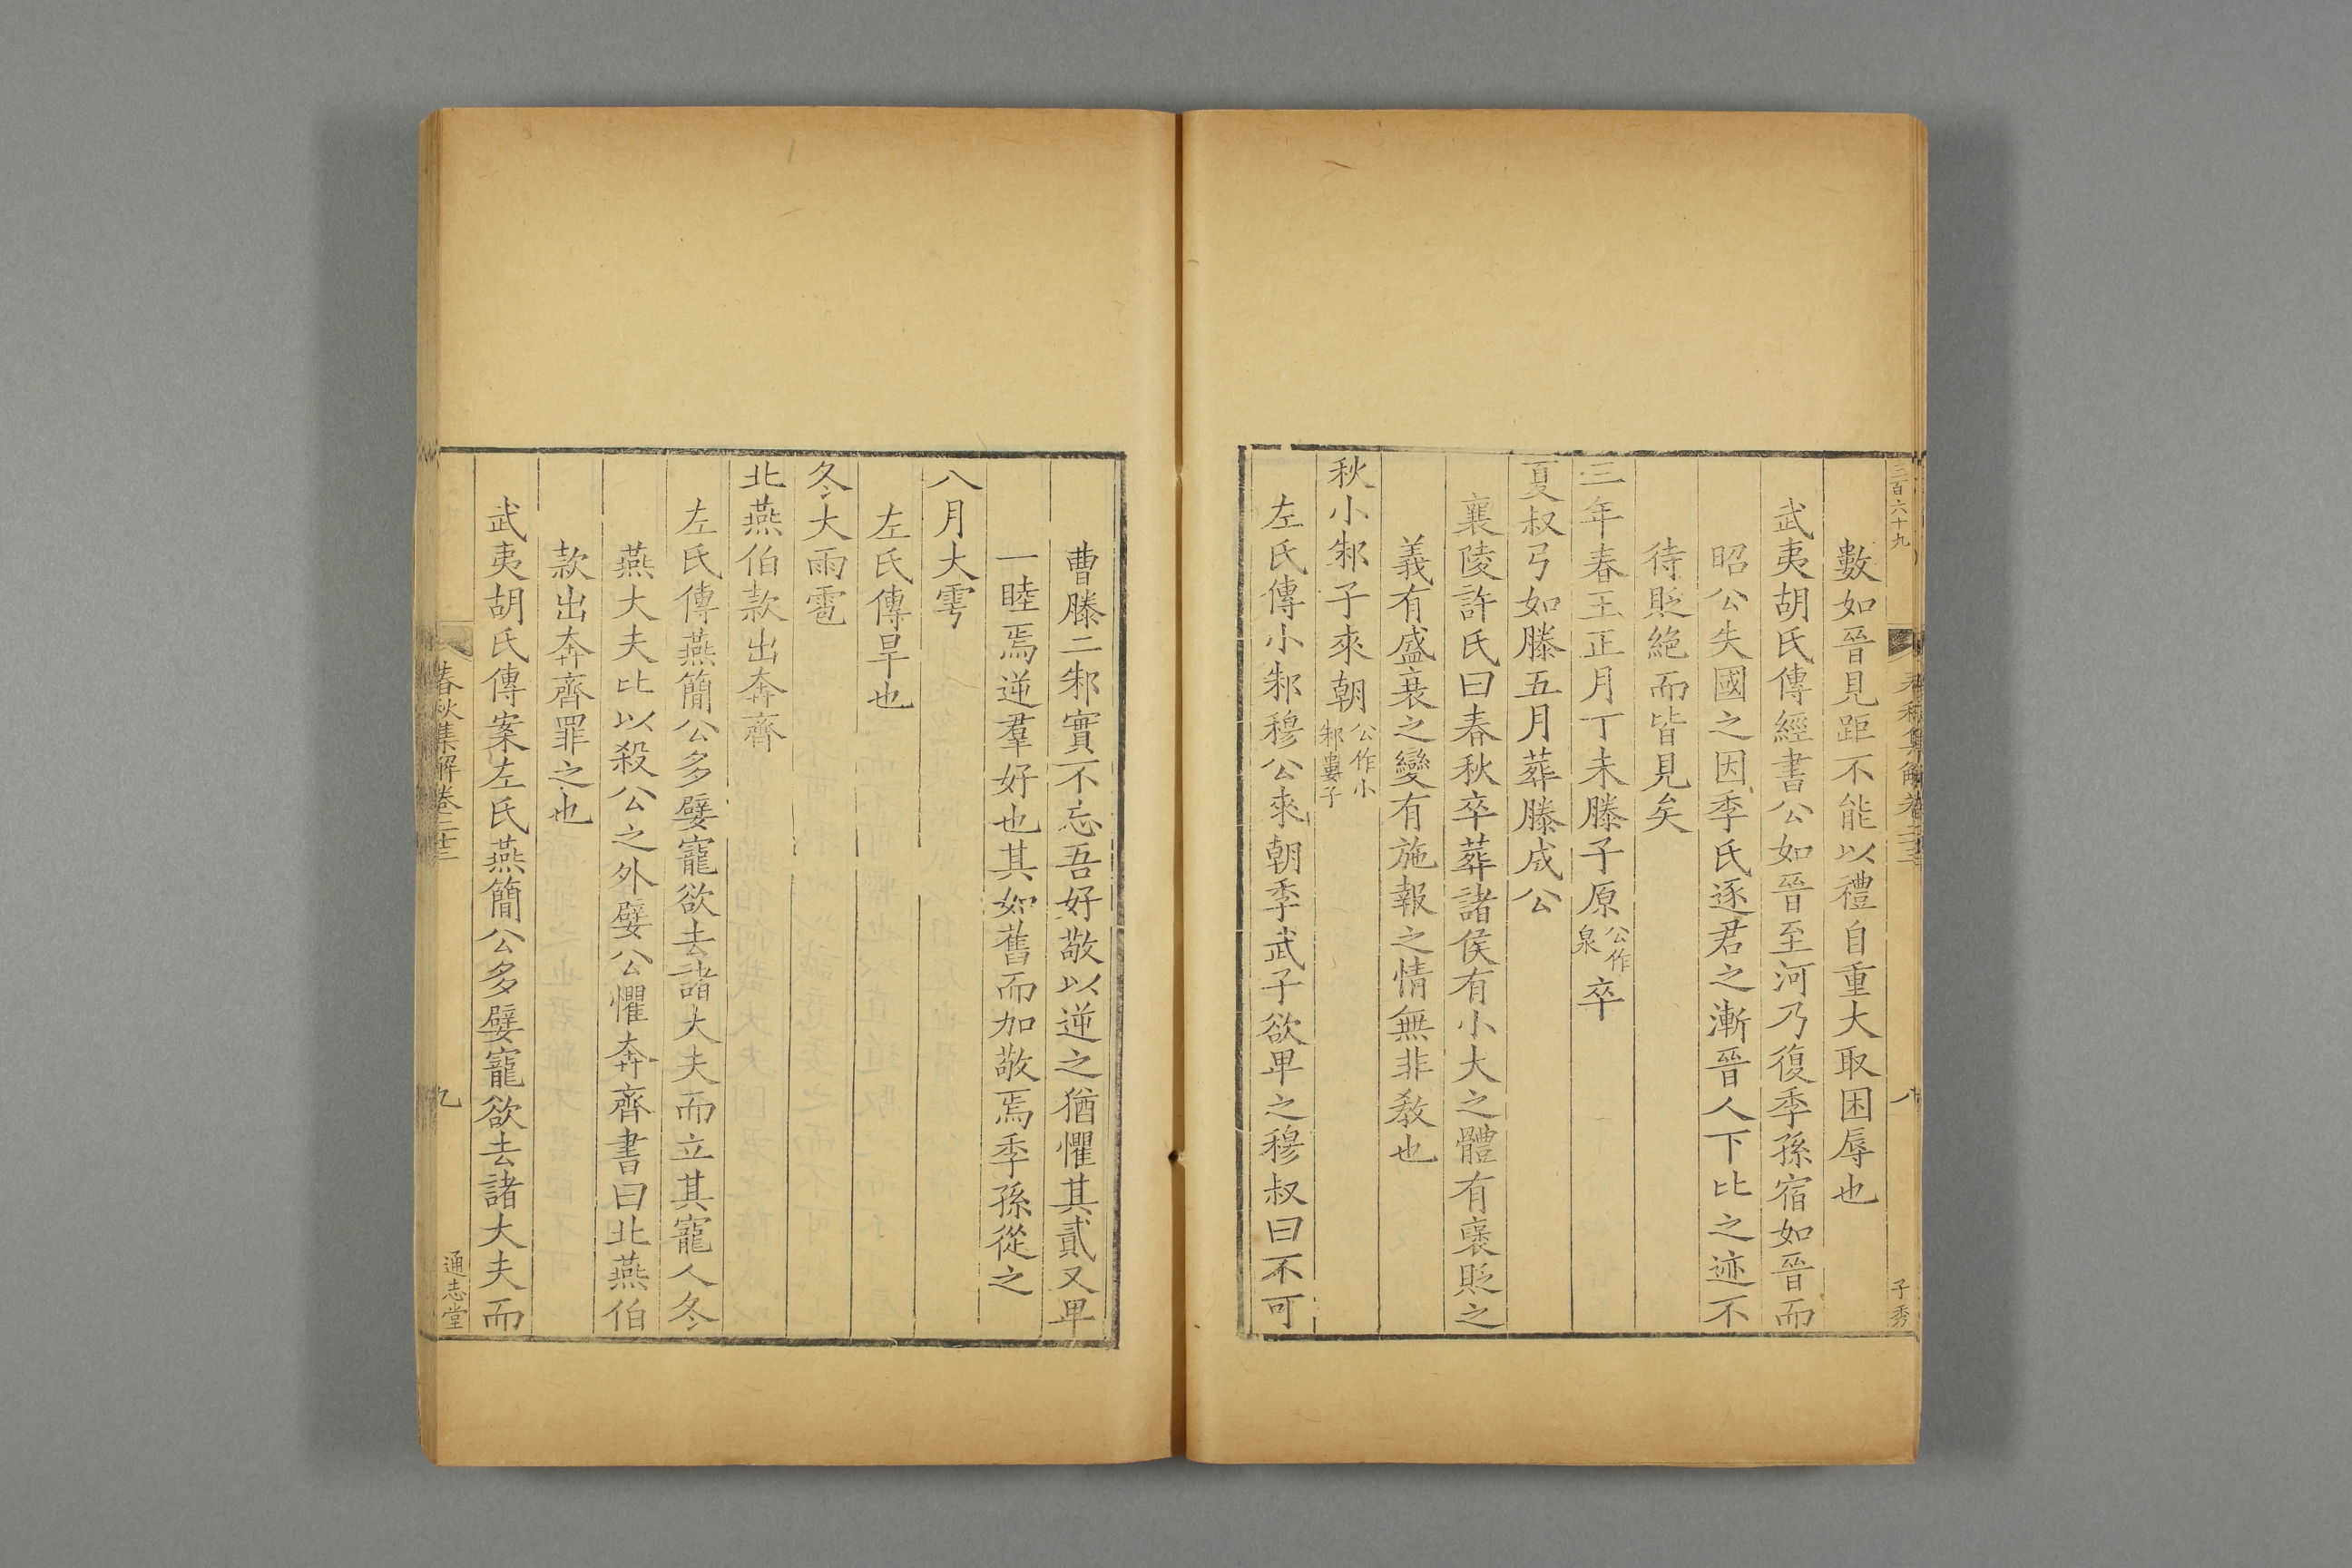 三百六十九
春秋集解卷二十三
八
子秀
數如晉見距不能以禮自重大取困辱也
武夷胡氏傳經書公如晉至河乃復季孫宿如晉而
昭公失國之因季氏逐君之漸晉人下比之迹不
待貶絕而皆見矣
三年春王正月丁未滕子原公作泉卒
夏叔弓如滕五月葬滕成公
襄陵許氏曰春秋卒葬諸侯有小大之體有襃貶之
義有盛衰之變有施報之情無非敎也
秋小邾子來朝公作小邾婁子
左氏傳小邾穆公來朝季武子欲卑之穆叔曰不可
曹滕二邾實不忘吾好敬以逆之猶懼其貳又卑
一睦焉逆羣好也其如舊而加敬焉季孫從之
八月大雩
左氏傳旱也
冬大雨雹
北燕伯款出奔齊
左氏傳燕簡公多嬖寵欲去諸大夫而立其寵人冬
燕大夫比以殺公之外嬖公懼奔齊書曰北燕伯
款出奔齊罪之也
武夷胡氏傳案左氏燕簡公多嬖寵欲去諸大夫而
春秋集解卷二十三
九
通志堂